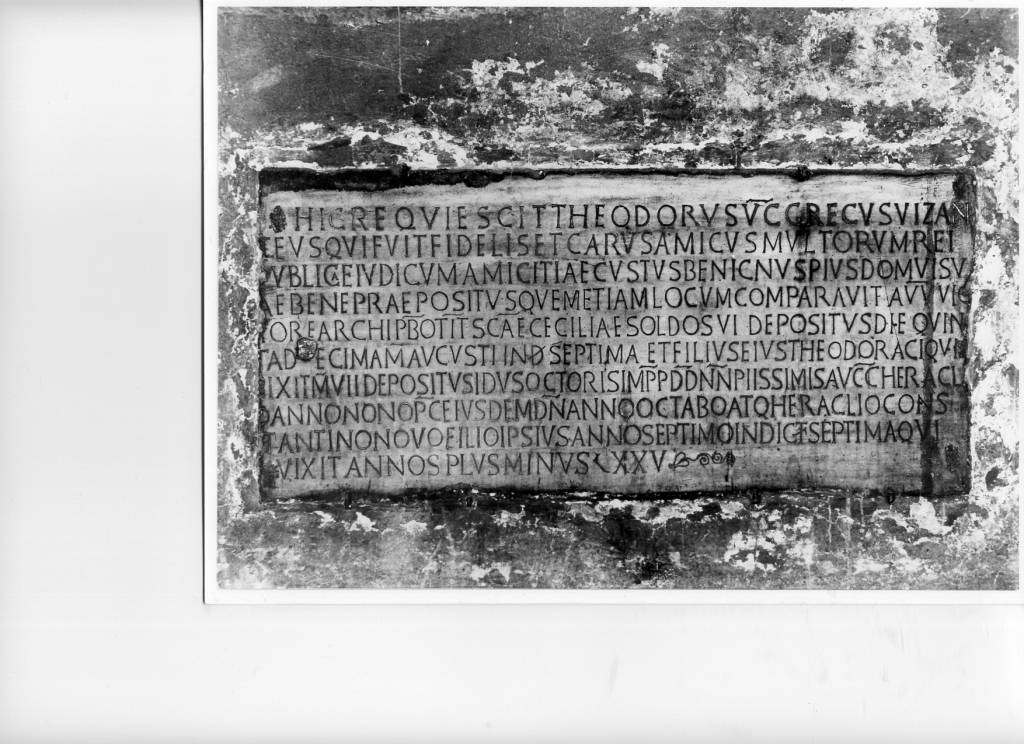 HIC REQVIESCIT THEODORVS VC GRECVS VIZAN
TEVS QVI FVIT FIDELIS ET CARVS AMICVS MVLTORVM REI
PVBLICE IVDICVM AMICITIAE CVSTVS BENIGNVS PIVS DOMVI SV
AE BENE PRAEPOSITVS QVEM ETIAM LOCVM COMPARAVIT
ORE ARCHIPBO TIT SCAE CECILIAE SOLDOS VI DEPOSITVS DIE QVIN
TA DECIMA M AVGVSTI IND SEPTIMA ET FILIVS EIVS THEODORACI QVI
VIXIT M VII DEPOSITVS IDVS OCTORIS IMPP DD NN PIISSIMIS AVGG HERACLI
O ANNO NONO PC EIVSDEM DN ANNO OCTABO ATQ HERACLIO CONS
TANTINO NOVO FILIO IPSIVS ANNO SEPTIMO INDICT SEPTIMA QVI
VIXIT ANNOS PLVS MINVS LXXV